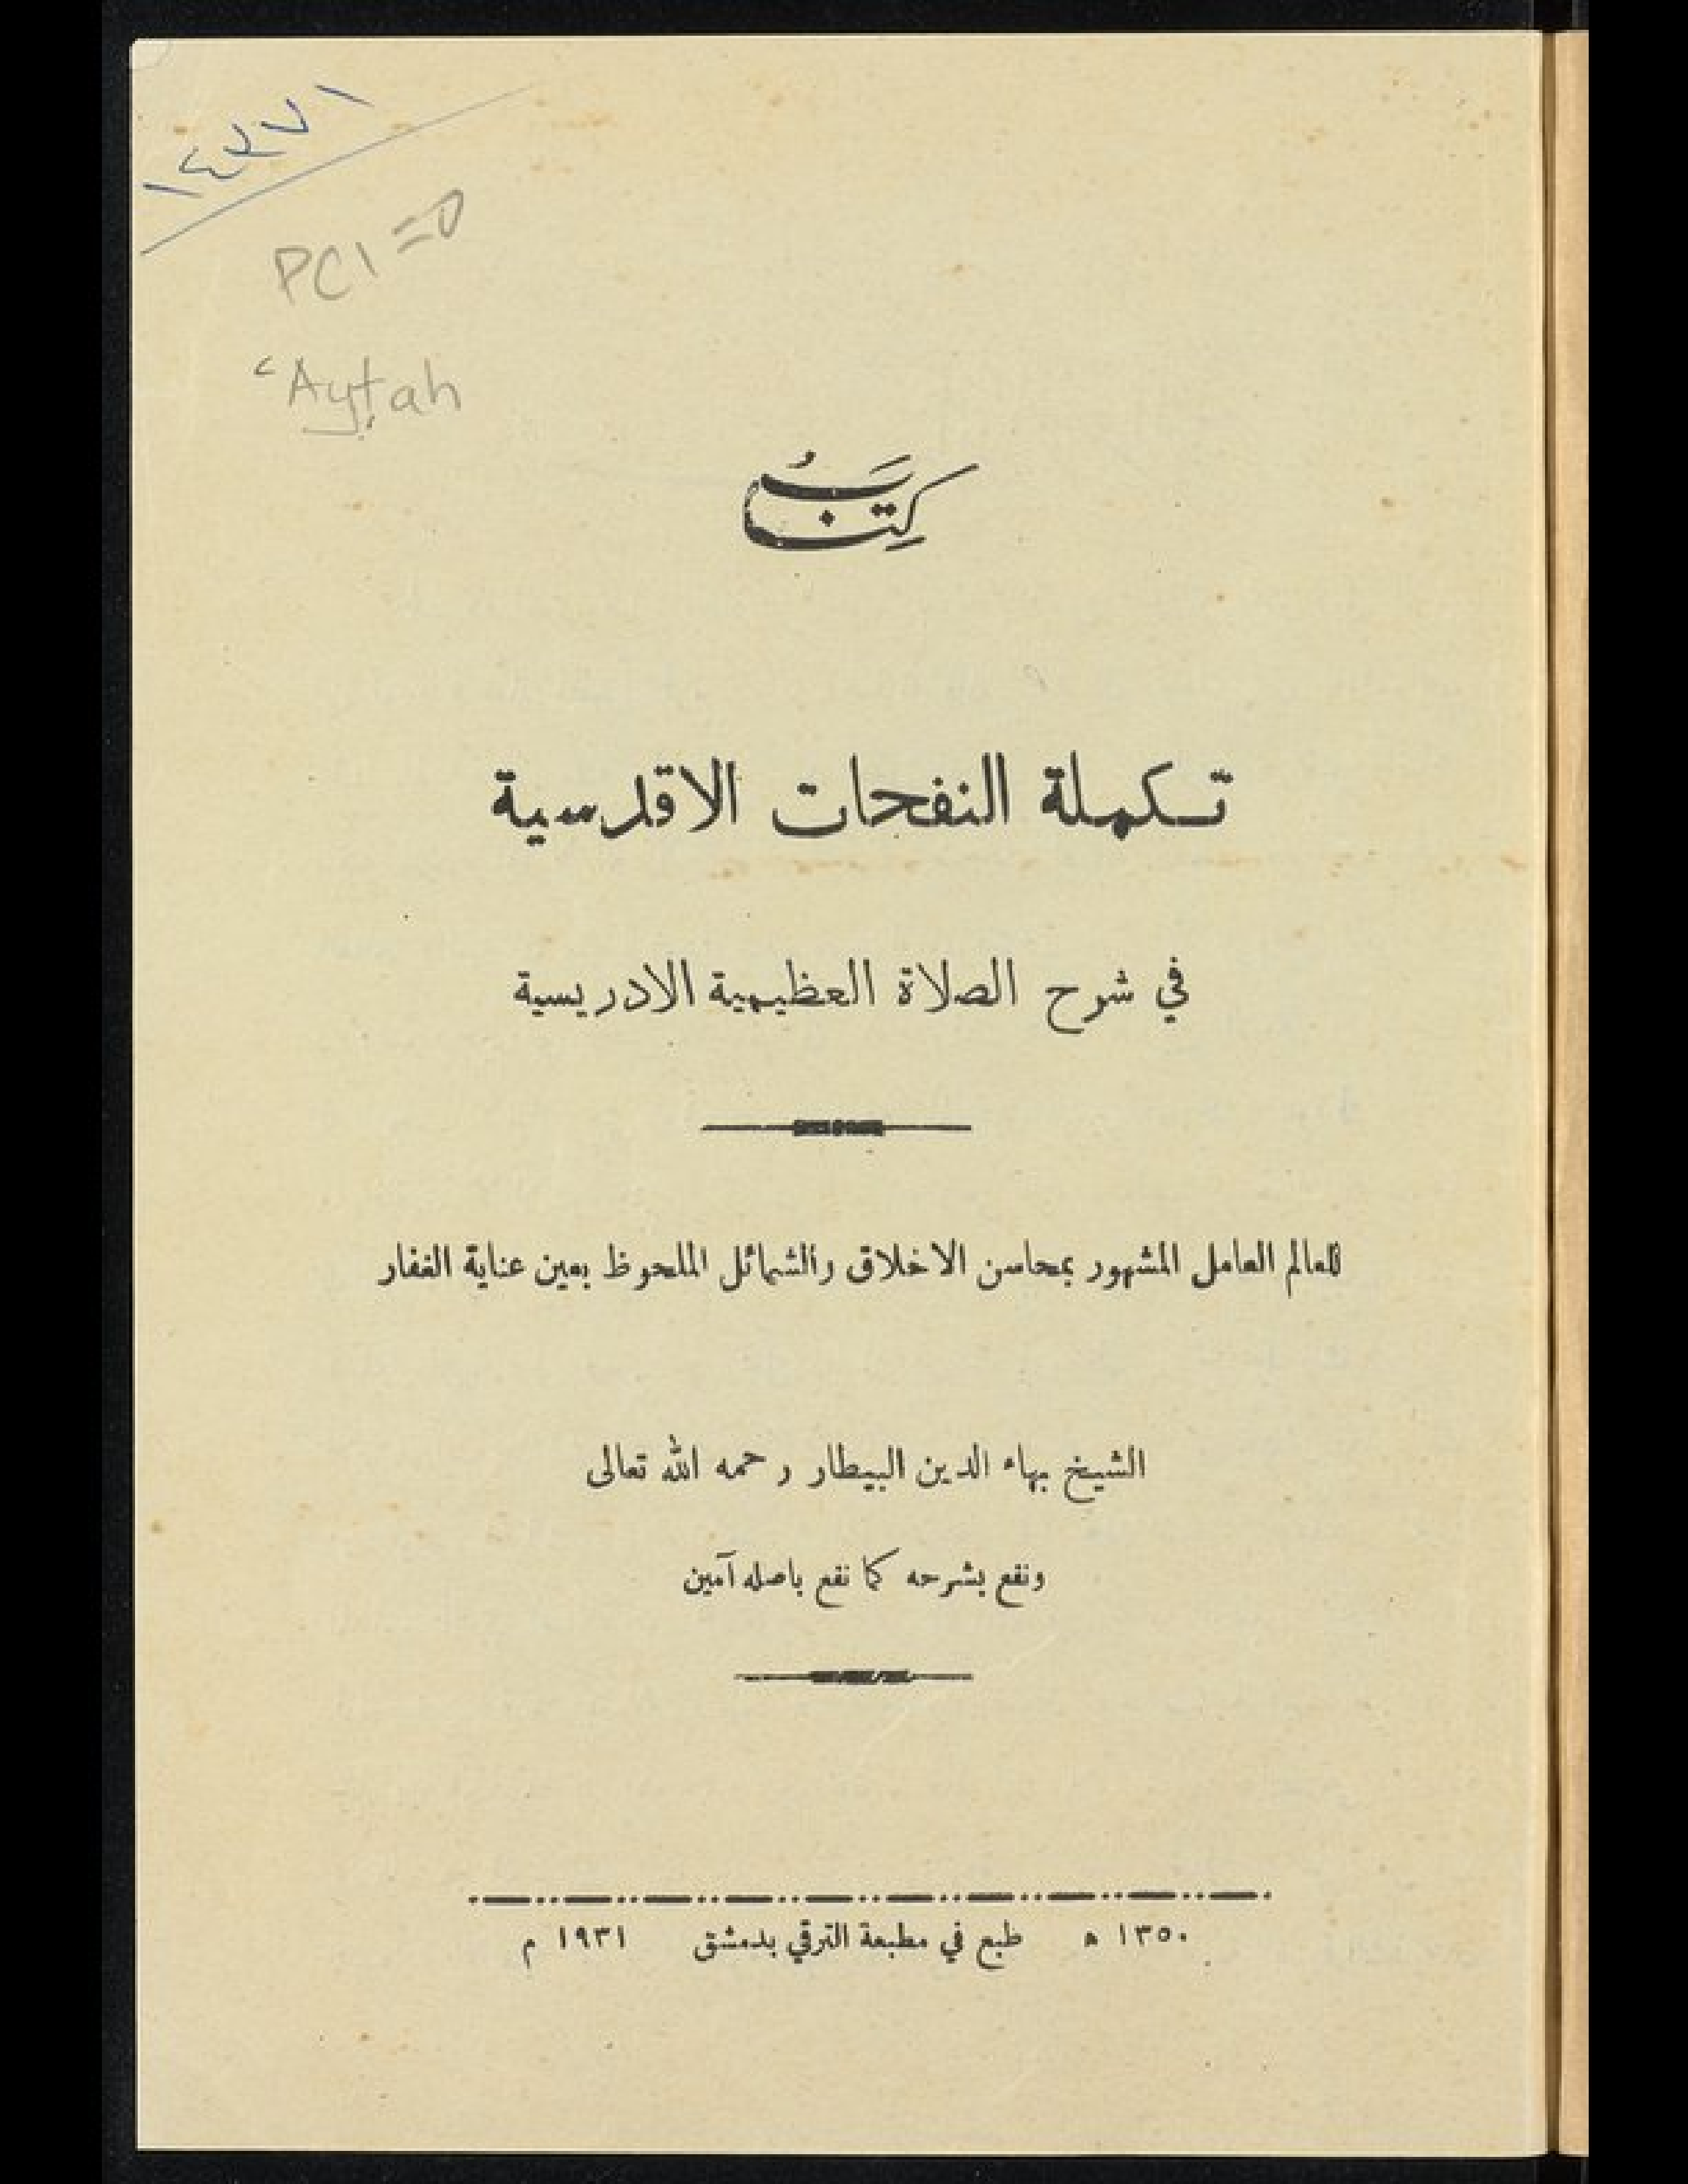 ١٤٣٧١
PCI =
ʿAyṭah
كِتَابُ
تكملة النفحات الاقدسية
في شرح الصلاة العظيمية الادريسية
للعالم العامل المشهور بمحاسن الاخلاق والشمائل الملحوظ بعين عناية الغفار
الشيخ بهاء الدين البيطار رحمه الله تعالى
ونفع بشرحه كما نفع باصله آمين
١٣٥٠ ه طبع في مطبعة الترقي بدمشق ١٩٣١ م